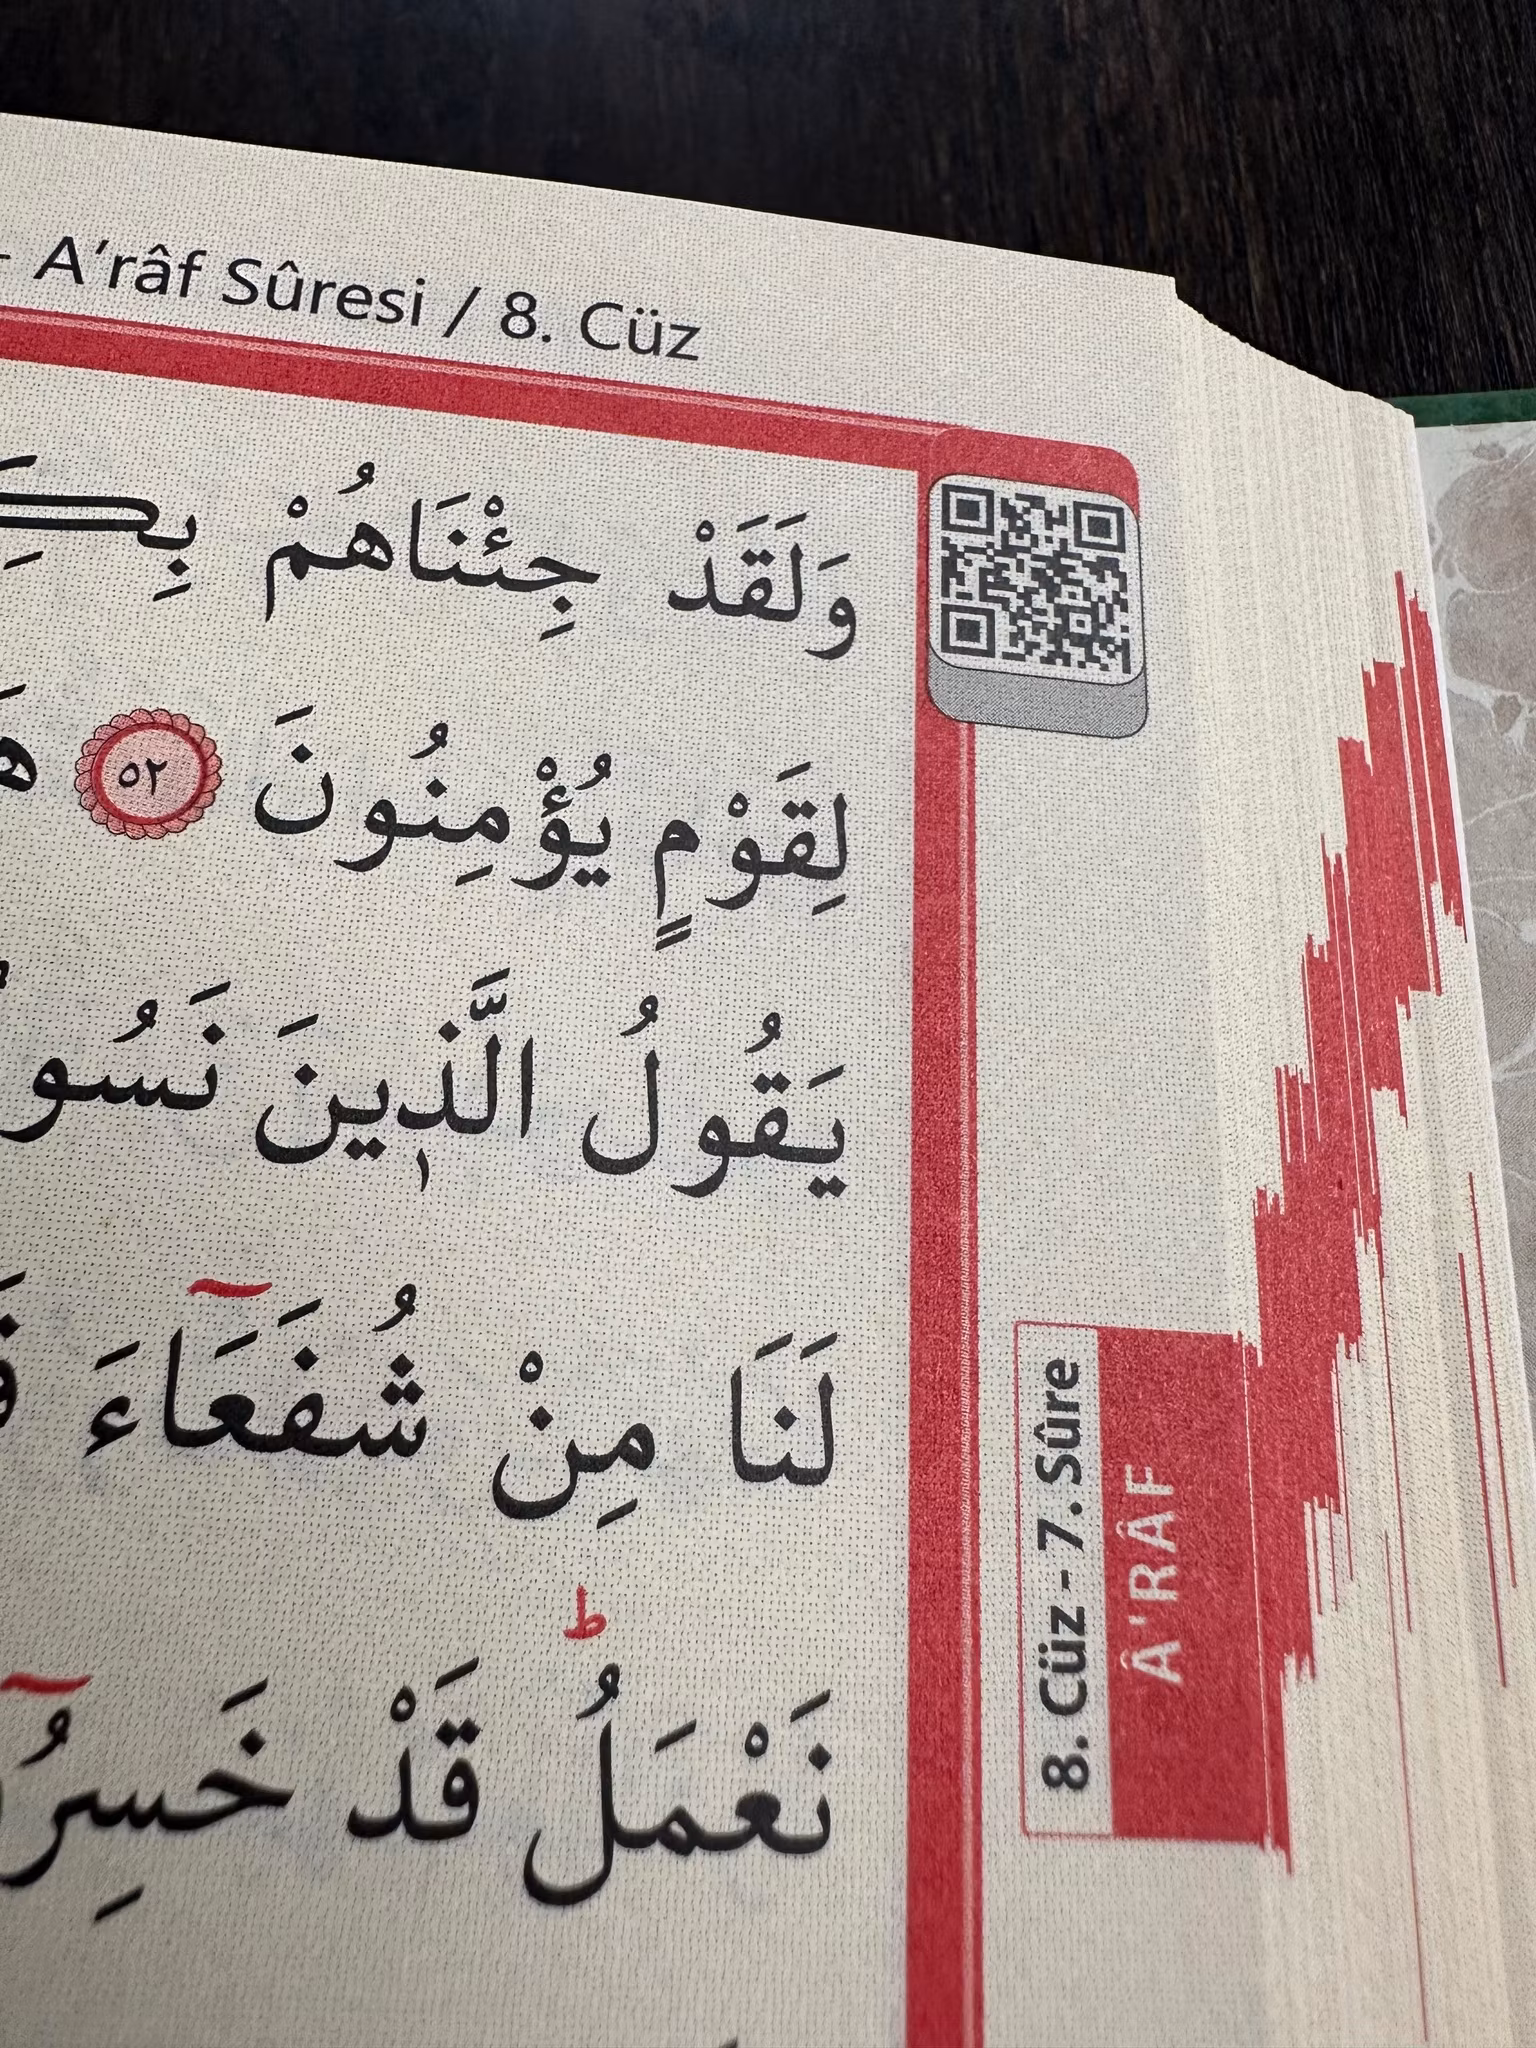 A'râf Sûresi / 8. Cüz
وَلَقَدْ جِئْنَاهُمْ
لِقَوْمٍ يُؤْمِنُونَ ٥٢
يَقُولُ الَّذ۪ينَ
لَنَا مِنْ شُفَعَٓاءَ
نَعْمَلُۜ قَدْ
8. Cüz - 7. Sûre
Â'RÂF